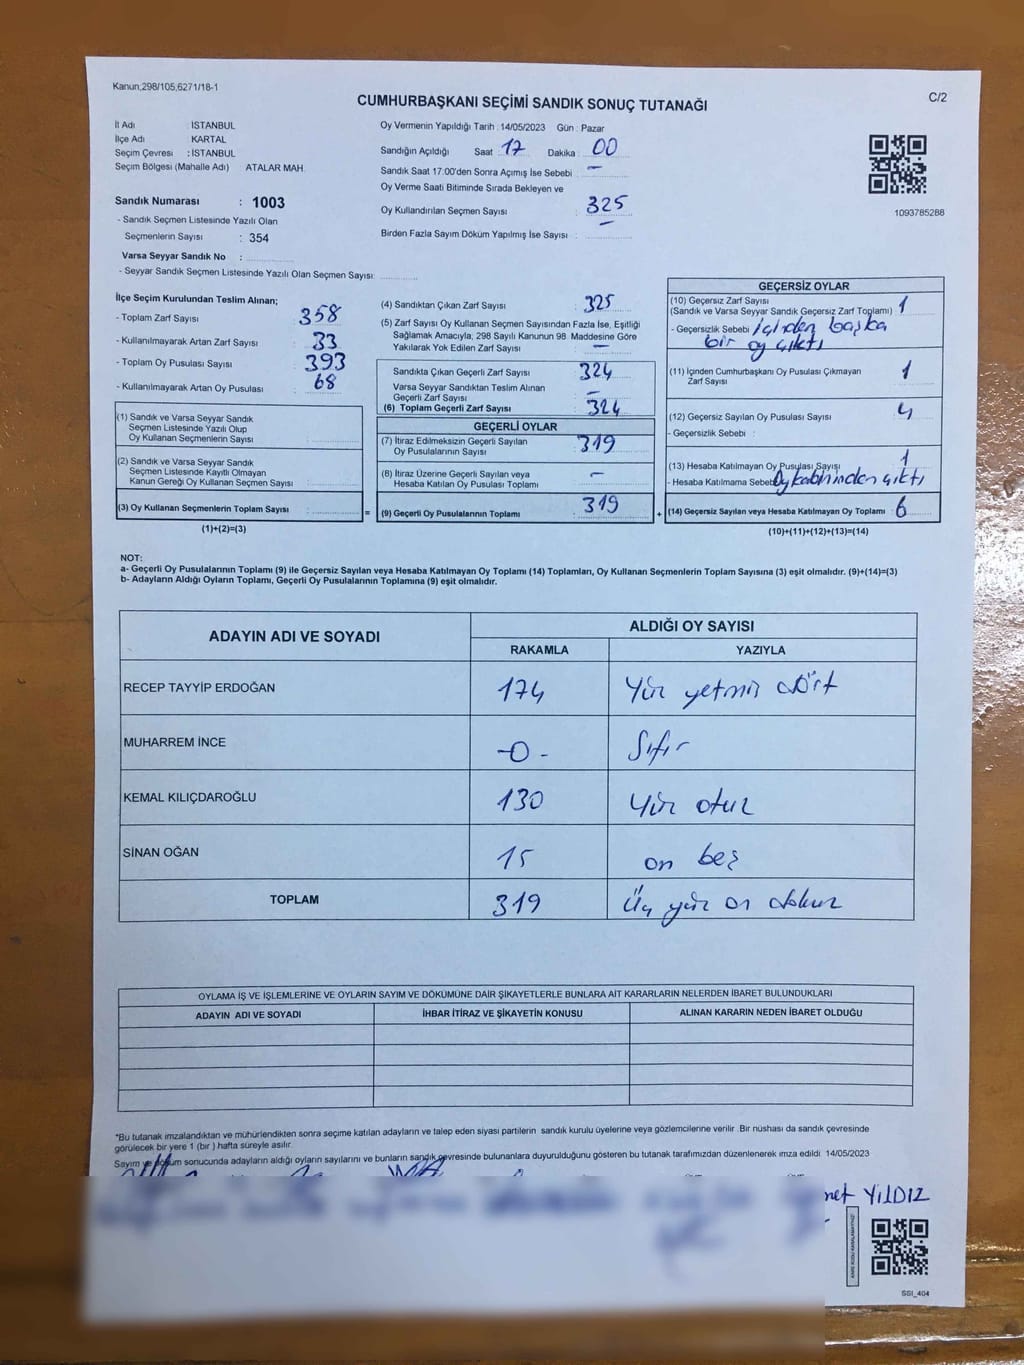 Kanun;298/105,6271/18-1
C/2
CUMHURBAŞKANI SEÇİMİ SANDIK SONUÇ TUTANAĞI
İl Adı İSTANBUL
İlçe Adı KARTAL
Seçim Çevresi : İSTANBUL
Seçim Bölgesi (Mahalle Adı) ATALAR MAH.
Sandık Numarası : 1003
- Sandık Seçmen Listesinde Yazılı Olan
Seçmenlerin Sayısı : 354
Varsa Seyyar Sandık No :
- Seyyar Sandık Seçmen Listesinde Yazılı Olan Seçmen Sayısı:
Oy Vermenin Yapıldığı Tarih : 14/05/2023 Gün : Pazar
Sandığın Açıldığı Saat 17 Dakika : 00
Sandık Saat 17:00'den Sonra Açımış İse Sebebi : -
Oy Verme Saati Bitiminde Sırada Bekleyen ve
Oy Kullandırılan Seçmen Sayısı : 325
Birden Fazla Sayım Döküm Yapılmış İse Sayısı : -
1093785288
İlçe Seçim Kurulundan Teslim Alınan;
- Toplam Zarf Sayısı : 358
- Kullanılmayarak Artan Zarf Sayısı : 33
- Toplam Oy Pusulası Sayısı : 393
- Kullanılmayarak Artan Oy Pusulası : 68
(1) Sandık ve Varsa Seyyar Sandık
Seçmen Listesinde Yazılı Olup
Oy Kullanan Seçmenlerin Sayısı :
(2) Sandık ve Varsa Seyyar Sandık
Seçmen Listesinde Kayıtlı Olmayan
Kanun Gereği Oy Kullanan Seçmen Sayısı :
(3) Oy Kullanan Seçmenlerin Toplam Sayısı : =
(1)+(2)=(3)
(4) Sandıktan Çıkan Zarf Sayısı : 325
(5) Zarf Sayısı Oy Kullanan Seçmen Sayısından Fazla İse, Eşitliği
Sağlamak Amacıyla; 298 Sayılı Kanunun 98. Maddesine Göre
Yakılarak Yok Edilen Zarf Sayısı : -
Sandıkta Çıkan Geçerli Zarf Sayısı : 324
Varsa Seyyar Sandıktan Teslim Alınan
Geçerli Zarf Sayısı : -
(6) Toplam Geçerli Zarf Sayısı : 324
GEÇERLİ OYLAR
(7) İtiraz Edilmeksizin Geçerli Sayılan
Oy Pusulalarının Sayısı : 319
(8) İtiraz Üzerine Geçerli Sayılan veya
Hesaba Katılan Oy Pusulası Toplamı : -
(9) Geçerli Oy Pusulalarının Toplamı : 319 +
GEÇERSİZ OYLAR
(10) Geçersiz Zarf Sayısı
(Sandık ve Varsa Seyyar Sandık Geçersiz Zarf Toplamı) : 1
- Geçersizlik Sebebi : içinden başka
bir oy çıktı
(11) İçinden Cumhurbaşkanı Oy Pusulası Çıkmayan
Zarf Sayısı : 1
(12) Geçersiz Sayılan Oy Pusulası Sayısı : 4
- Geçersizlik Sebebi :
(13) Hesaba Katılmayan Oy Pusulası Sayısı : 1
- Hesaba Katılmama Sebebi Oy kabininden çıktı
(14) Geçersiz Sayılan veya Hesaba Katılmayan Oy Toplamı : 6
(10)+(11)+(12)+(13)=(14)
NOT:
a- Geçerli Oy Pusulalarının Toplamı (9) ile Geçersiz Sayılan veya Hesaba Katılmayan Oy Toplamı (14) Toplamları, Oy Kullanan Seçmenlerin Toplam Sayısına (3) eşit olmalıdır. (9)+(14)=(3)
b- Adayların Aldığı Oyların Toplamı, Geçerli Oy Pusulalarının Toplamına (9) eşit olmalıdır.
ADAYIN ADI VE SOYADI
ALDIĞI OY SAYISI
RAKAMLA YAZIYLA
RECEP TAYYİP ERDOĞAN 174 Yüz yetmiş dört
MUHARREM İNCE -0- Sıfır
KEMAL KILIÇDAROĞLU 130 Yüz otuz
SİNAN OĞAN 15 on beş
TOPLAM 319 Üç yüz on dokuz
OYLAMA İŞ VE İŞLEMLERİNE VE OYLARIN SAYIM VE DÖKÜMÜNE DAİR ŞİKAYETLERLE BUNLARA AİT KARARLARIN NELERDEN İBARET BULUNDUKLARI
ADAYIN ADI VE SOYADI İHBAR İTİRAZ VE ŞİKAYETİN KONUSU ALINAN KARARIN NEDEN İBARET OLDUĞU
*Bu tutanak imzalandıktan ve mühürlendikten sonra seçime katılan adayların ve talep eden siyasi partilerin sandık kurulu üyelerine veya gözlemcilerine verilir. Bir nüshası da sandık çevresinde
görülecek bir yere 1 (bir) hafta süreyle asılır.
Sayım ve döküm sonucunda adayların aldığı oyların sayılarını ve bunların sandık çevresinde bulunanlara duyurulduğunu gösteren bu tutanak tarafımızdan düzenlenerek imza edildi. 14/05/2023
YILDIZ
SSI_404